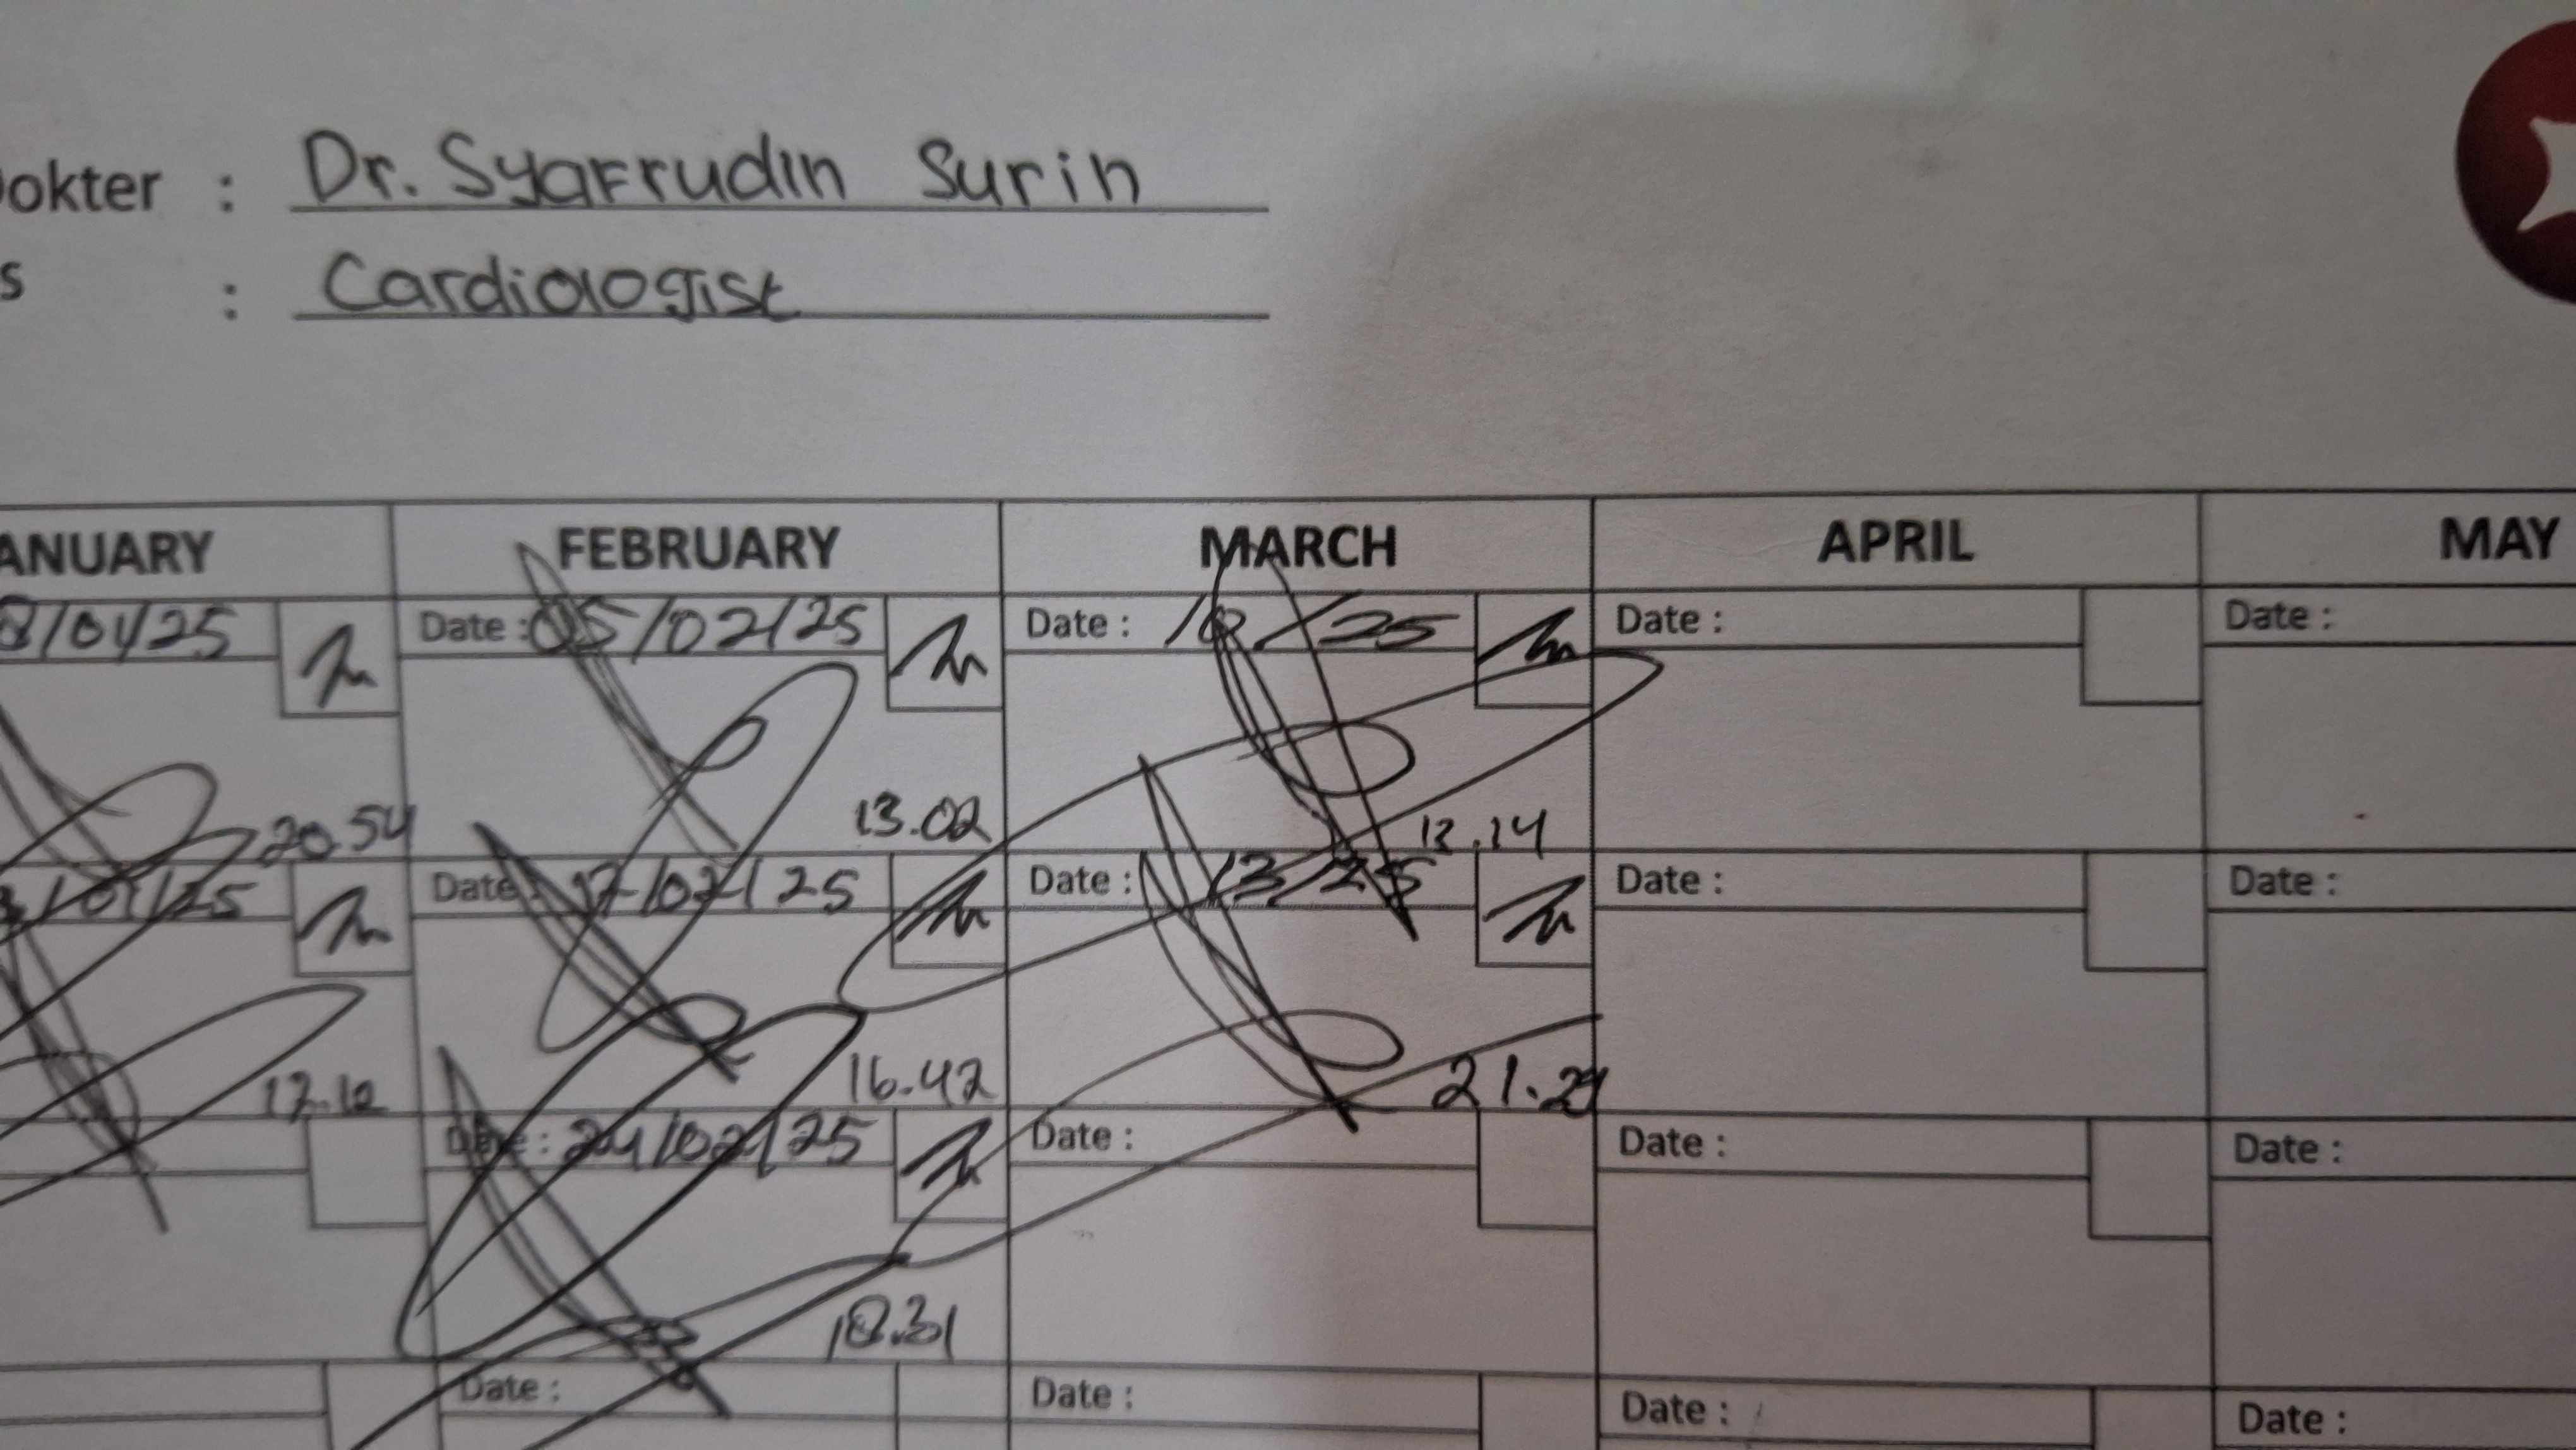 Dokter : Dr. Syafrudin Surin
s : Cardiologist
ANUARY FEBRUARY MARCH APRIL MAY
8/01/25 Date : 05/02/25 Date : /25 Date : Date :
20.54 13.02 .14
/01/25 Date : 17/02/25 Date : 13/ Date : Date :
17.12 16.42 21.29
Date : 24/02/25 Date : Date : Date :
18.31
Date : Date : Date : Date :